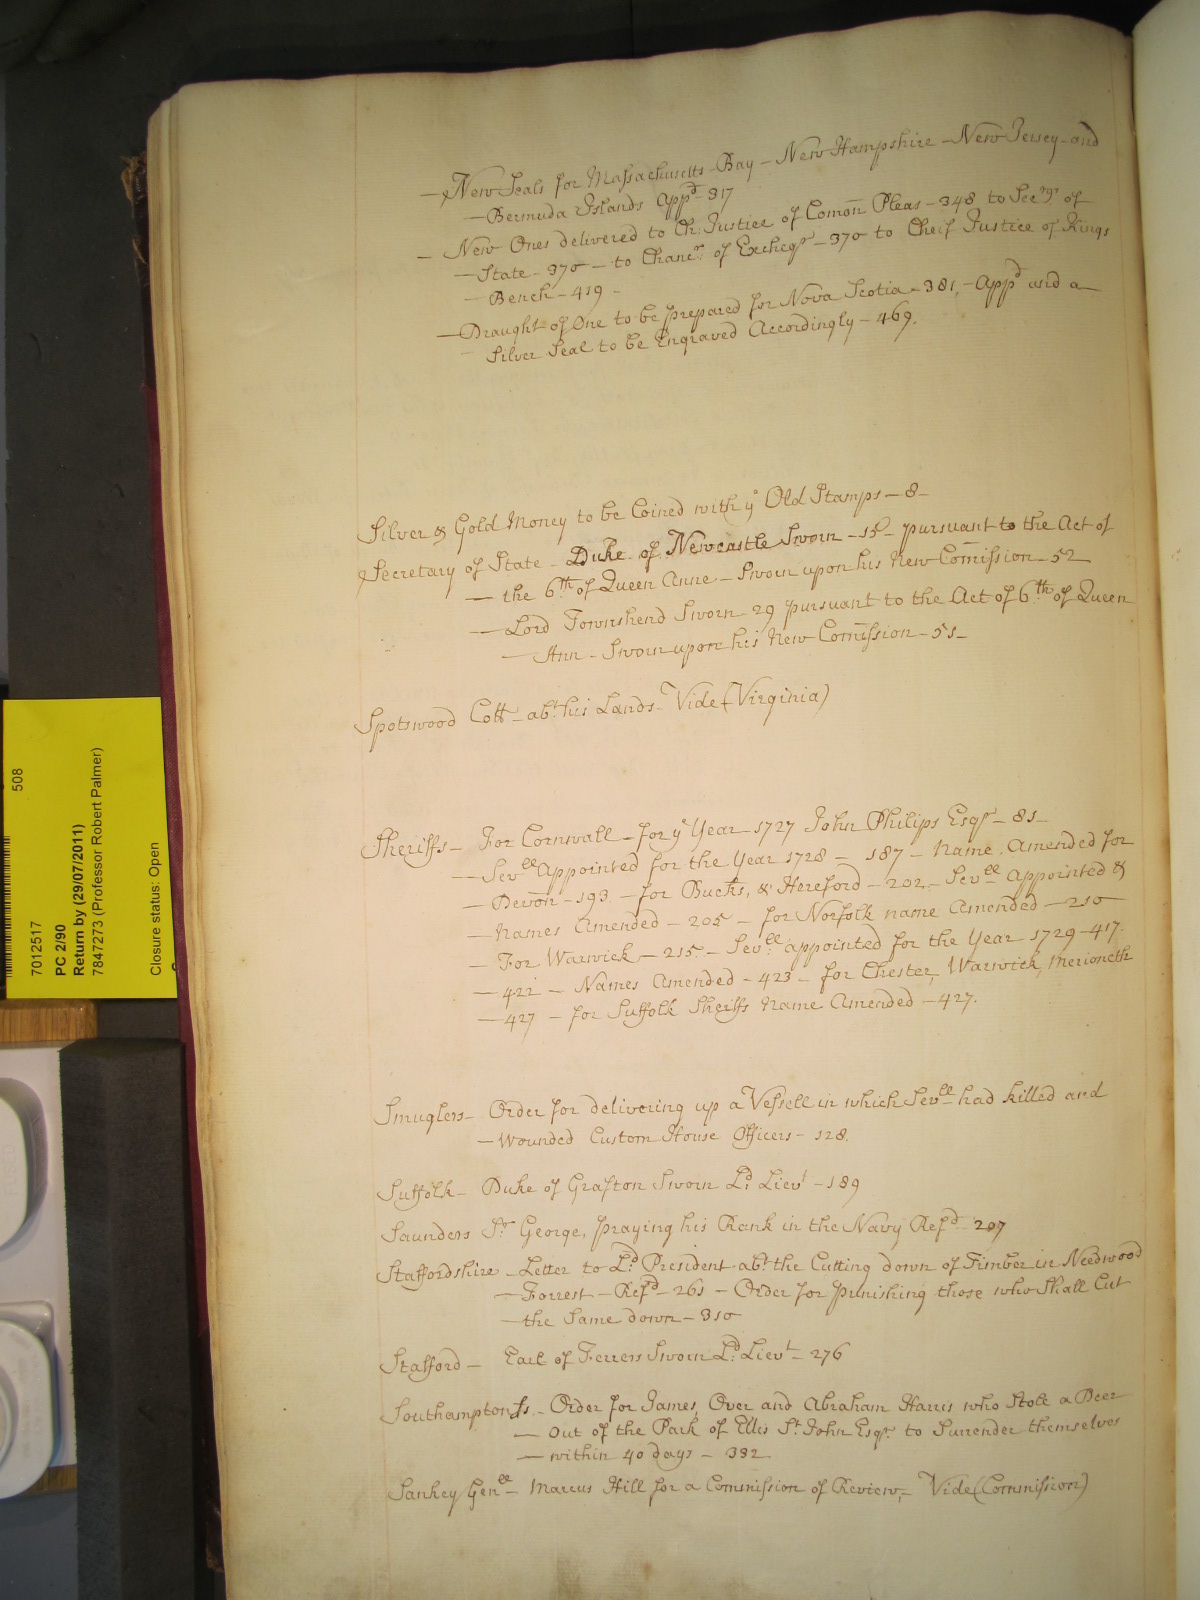 — New Seals for Massachusetts Bay — New Hampshire — New Jersey — and
— Bermuda Islands App^d 317
— New Ones delivered to Ch: Justice of Comon Pleas — 348 to Sec^rys of
— State — 370 — to Chanc^r of Excheq^r — 370 to Cheif Justice of Kings
— Bench — 419 —
— Draught of One to be prepared for Nova Scotia — 381 — App^d and a
— Silver Seal to be Engraved Accordingly — 469.
Silver & Gold Money to be Coined with y^e Old Stamps — 8 —
Secretary of State — Duke of Newcastle Sworn — 15 — pursuant to the Act of
— the 6^th of Queen Anne — Sworn upon his New Comission — 52
— Lord Townshend Sworn 29 pursuant to the Act of 6^th of Queen
— Ann — Sworn upon his New Comission — 51 —
Spotswood Coll — ab^t his Lands — Vide (Virginia)
Sheriffs — For Cornwall — for y^e Year — 1727 John Philips Esq^r — 81 —
— Sev^ll Appointed for the Year 1728 — 187 — Name Amended for
— Devon — 193 — for Bucks, & Hereford — 202 — Sev^ll Appointed &
— Names Amended — 205 — for Norfolk name Amended — 210
— For Warwick — 215 — Sev^ll appointed for the Year 1729 — 417.
— 422 — Names Amended — 423 — for Chester, Warwick, Merioneth
— 427 — for Suffolk Sheriffs Name Amended — 427.
Smuglers — Order for delivering up a Vessell in which Sev^ll had killed and
— Wounded Custom House Officers — 128.
Suffolk — Duke of Grafton Sworn L^d Liev^t — 189
Saunders S^r George, praying his Rank in the Navy Ref^d 207
Staffordshire — Letter to L^d President ab^t the Cutting down of Timber in Needwood
— Forrest — Ref^d — 261 — Order for punishing those who Shall Cut
— the Same down — 310
Stafford — Earl of Ferrers Sworn L^d Liev^t — 276
Southampton — Order for James Over and Abraham Harris who Stole a Deer
— Out of the Park of Ellis S^t John Esq^r to Surrender themselves
— within 40 days — 332
Sankey Gen^ll — Marcus Hill for a Commission of Review — Vide (Commission)
508
7012517
PC 2/90
Return by (29/07/2011)
7847273 (Professor Robert Palmer)
Closure status: Open